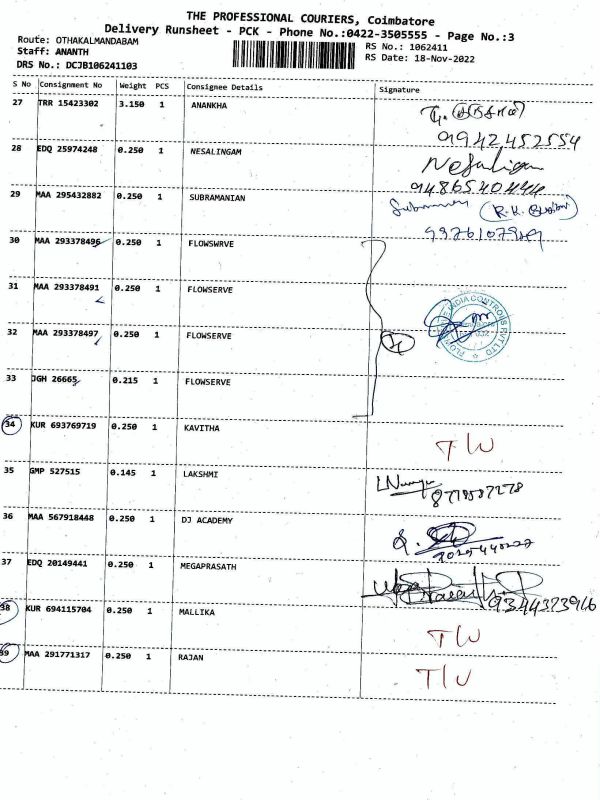 THE PROFESSIONAL COURIERS, Coimbatore
Delivery Runsheet - PCK - Phone No.:0422-3505555 - Page No.:3
Route: OTHAKALMANDABAM
Staff: ANANTH
DRS No.: DCJB106241103
RS No.: 1062411
RS Date: 18-Nov-2022
S No Consignment No Weight PCS Consignee Details Signature
27 TRR 15423302 3.150 1 ANANKHA
9942452554
28 EDQ 25974248 0.250 1 NESALINGAM Nesalingam
29 MAA 295432882 0.250 1 SUBRAMANIAN
30 MAA 293378496 0.250 1 FLOWSWRVE
31 MAA 293378491 0.250 1 FLOWSERVE
32 MAA 293378497 0.250 1 FLOWSERVE
33 JGH 26665 0.215 1 FLOWSERVE
34 KUR 693769719 0.250 1 KAVITHA T/U
35 GMP 527515 0.145 1 LAKSHMI
36 MAA 567918448 0.250 1 DJ ACADEMY
37 EDQ 20149441 0.250 1 MEGAPRASATH
9344323916
38 KUR 694115704 0.250 1 MALLIKA T/U
39 MAA 291771317 0.250 1 RAJAN T/U